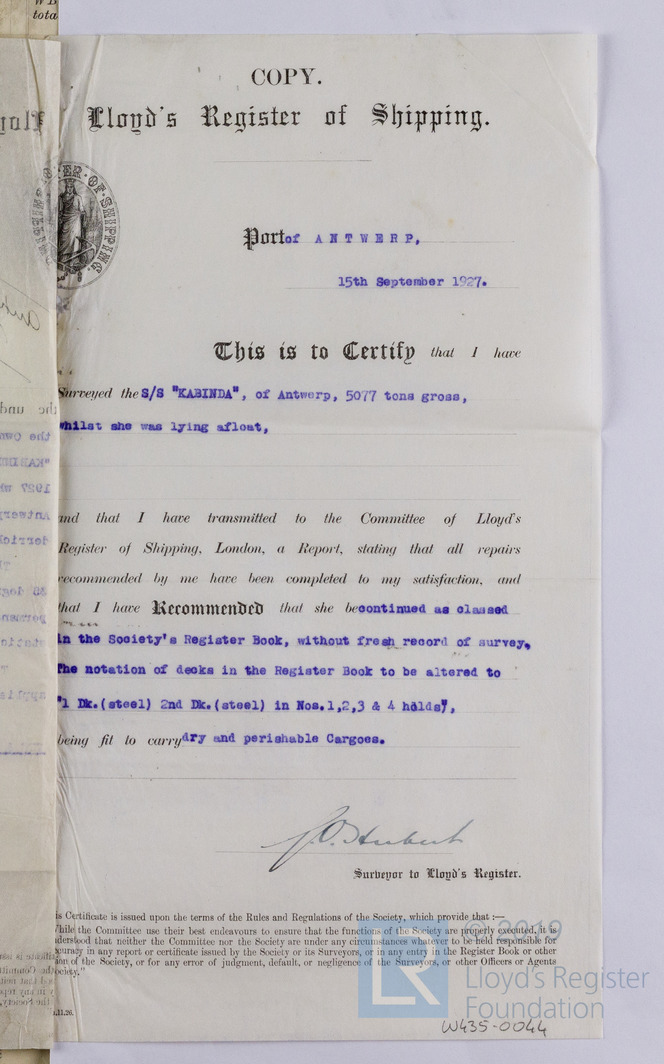 tota
COPY.
Lloyd's Register of Shipping.
Port of ANTWERP,
15th September 1927.
This is to Certify that I have
Surveyed the S/S "KABINDA", of Antwerp, 5077 tons gross,
whilst she was lying afloat,
and that I have transmitted to the Committee of Lloyd's
Register of Shipping, London, a Report, stating that all repairs
recommended by me have been completed to my satisfaction, and
that I have Recommended that she be continued as classed
in the Society's Register Book, without fresh record of survey.
The notation of decks in the Register Book to be altered to
"1 Dk.(steel) 2nd Dk.(steel) in Nos.1,2,3 & 4 holds",
being fit to carry dry and perishable Cargoes.
Surveyor to Lloyd's Register.
is Certificate is issued upon the terms of the Rules and Regulations of the Society, which provide that :—
While the Committee use their best endeavours to ensure that the functions of the Society are properly executed, it is
understood that neither the Committee nor the Society are under any circumstances whatever to be held responsible for
curacy in any report or certificate issued by the Society or its Surveyors, or in any entry in the Register Book or other
ion of the Society, or for any error of judgment, default, or negligence of the Surveyors, or other Officers or Agents
ociety."
.11.26.
© 2019
LR
Lloyd's Register
Foundation
W435-0044